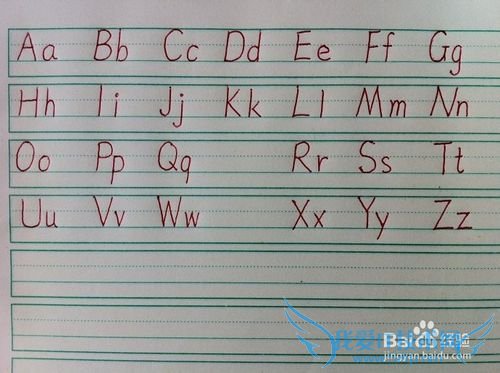 Aa Bb Cc Dd Ee Ff Gg
Hh Ii Jj Kk Ll Mm Nn
Oo Pp Qq Rr Ss Tt
Uu Vv Ww Xx Yy Zz
Baidu 经验
jingyan.baidu.com